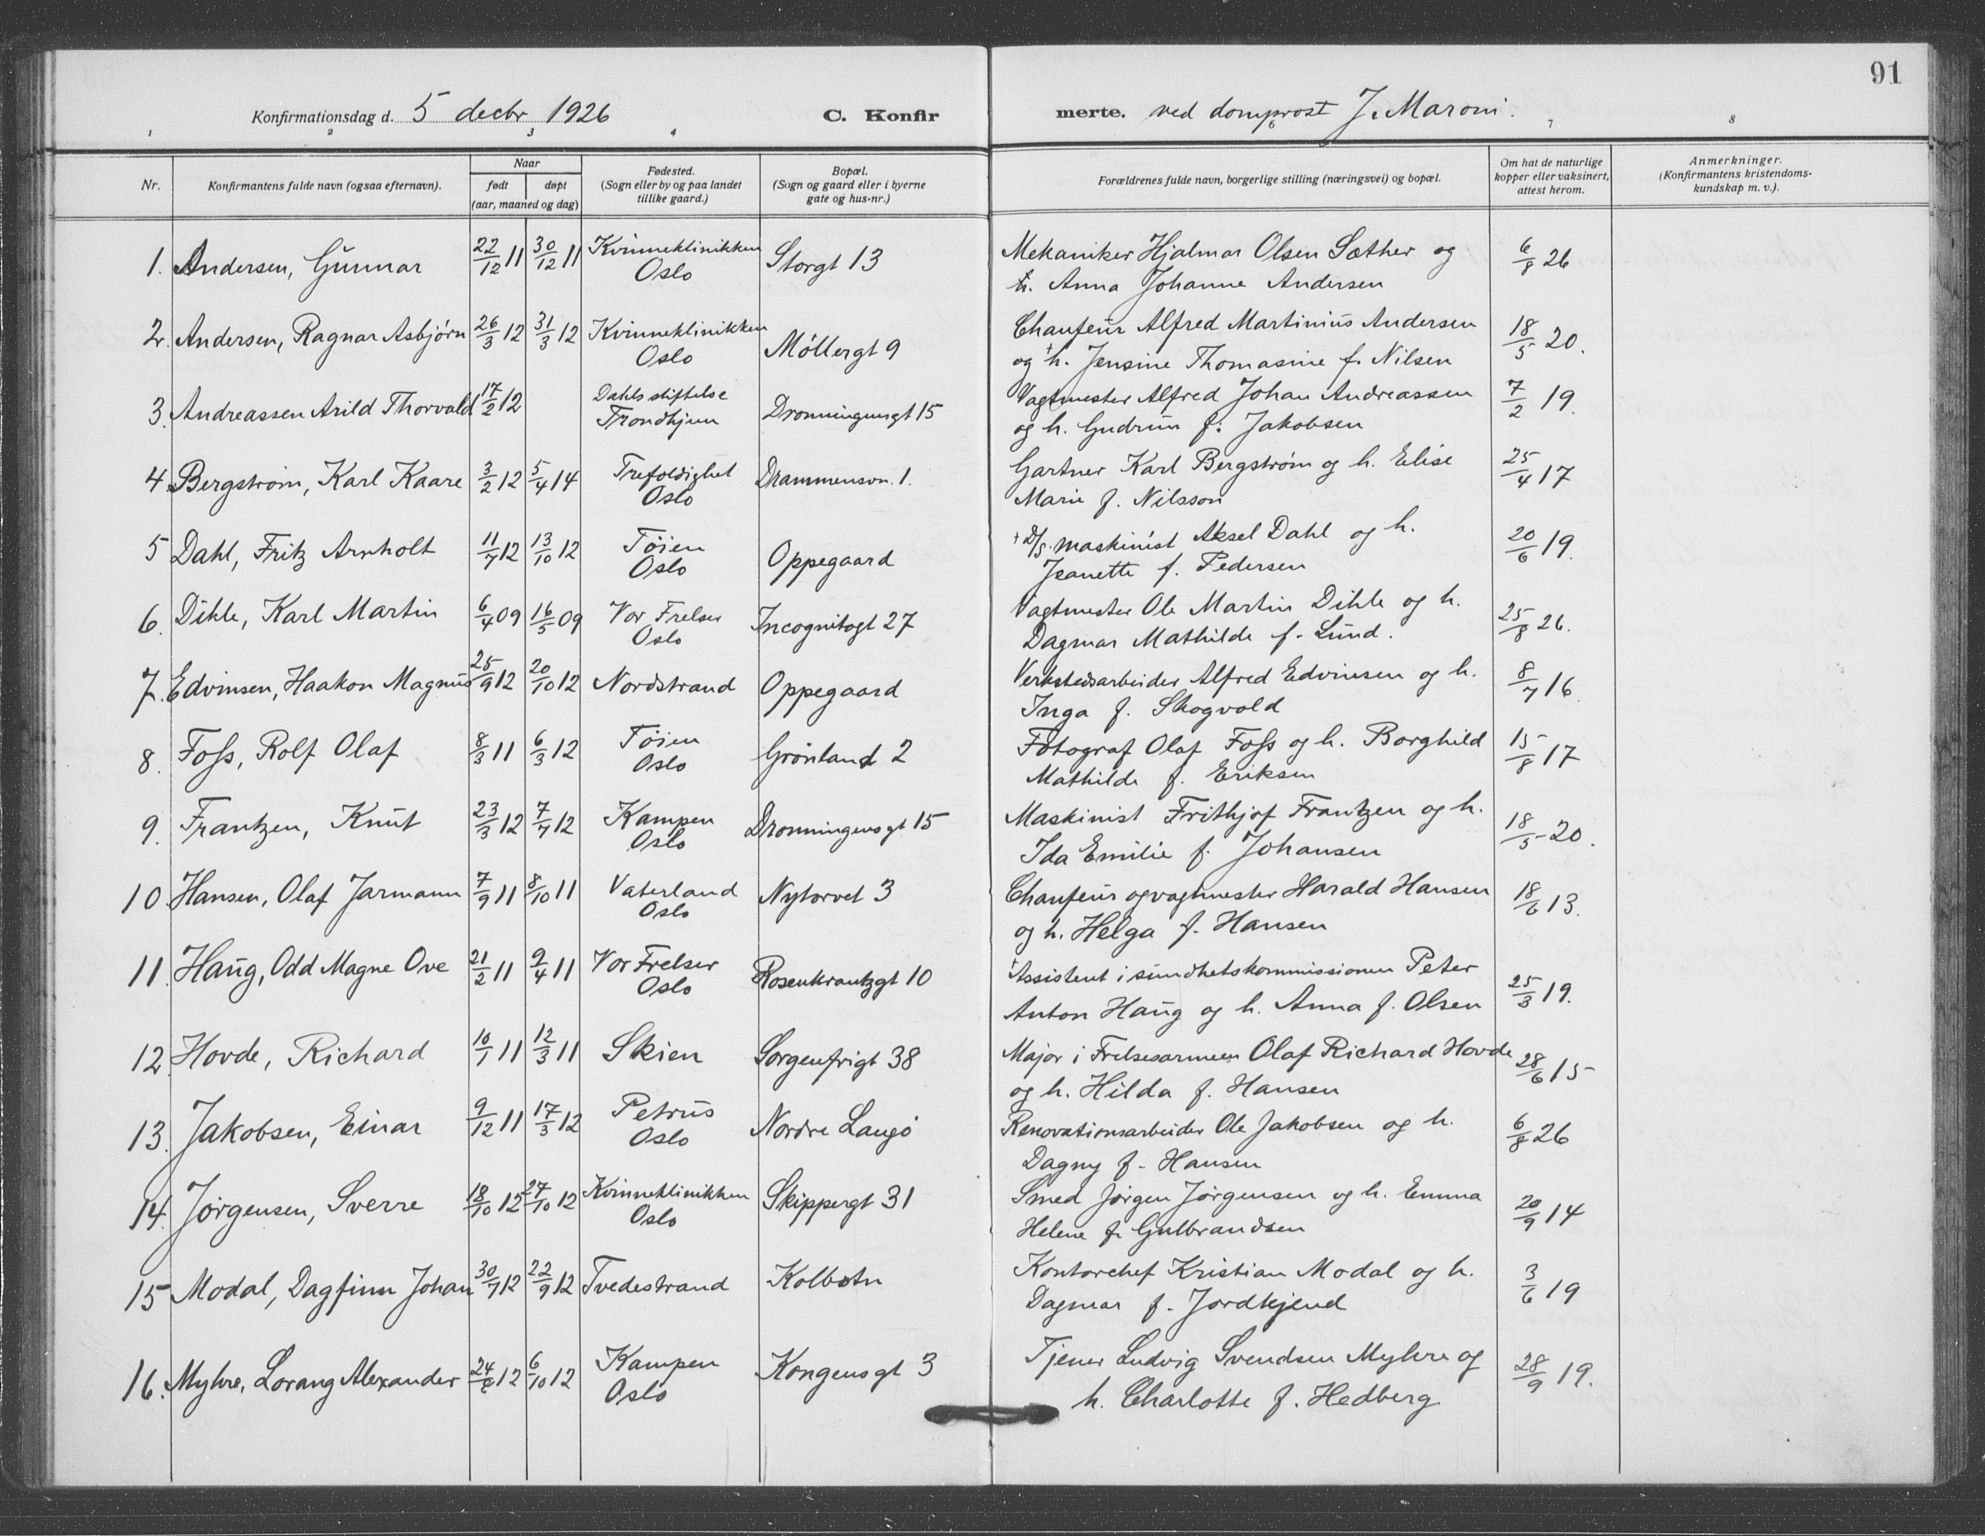 91
Konfirmationsdag d. 5 decbr 1926 C. Konfirmerte. ved domprost J. Maroni.
1 2 3 4 6 7 8
Nr. Konfirmantens fulde navn (ogsaa efternavn). Naar født døpt (aar, maaned og dag) Fødested. (Sogn eller by og paa landet tillike gaard.) Bopæl. (Sogn og gaard eller i byerne gate og hus-nr.) Forældrenes fulde navn, borgerlige stilling (næringsvei) og bopæl. Om hat de naturlige kopper eller vaksinert, attest herom. Anmerkninger. (Konfirmantens kristendomskundskap m. v.).
1. Andersen, Gunnar 22/12 11 30/12 11 Kvinneklinikken Oslo Storgt 13 Mekaniker Hjalmar Olsen Sæther og 6/8 26
h. Anna Johanne Andersen
2. Andersen, Ragnar Asbjørn 26/3 12 31/3 12 Kvinneklinikken Oslo Møllergt 9 Chaufeur Alfred Martinius Andersen 18/5 20.
og † h. Jensine Thomasine f. Nilsen
3. Andreassen Arild Thorvald 17/2 12 Dahls stiftelse Trondhjem Dronningensgt 15 Vagtmester Alfred Johan Andreassen 7/2 19.
og h. Gudrun f. Jakobsen
4. Bergstrøm, Karl Kaare 3/2 12 5/4 14 Trefoldighet Oslo Drammensvn. 1. Gartner Karl Bergstrøm og h. Elise 25/4 17
Marie f. Nilsson
5 Dahl, Fritz Arnholt 11/7 12 13/10 12 Tøien Oslo Oppegaard † D/S. maskinist Aksel Dahl og h. 20/6 19.
Jeanette f. Pedersen
6. Dihle, Karl Martin 6/4 09 16/5 09 Vor Frelser Oslo Incognitogt 27 Vagtmester Ole Martin Dihle og h. 25/8 26.
Dagmar Mathilde f. Lund.
7. Edvinsen, Haakon Magnus 25/9 12 20/10 12 Nordstrand Oppegaard Verkstedsarbeider Alfred Edvinsen og h. 8/7 16
Inga f. Skogvold
8. Foss, Rolf Olaf 8/3 11 6/3 12 Tøien Oslo Grønland 2 Fotograf Olaf Foss og h. Borghild 15/8 17
Mathilde f. Eriksen
9. Frantzen, Knut 23/3 12 7/7 12 Kampen Oslo Dronningensgt 15 Maskinist Frithjof Frantzen og h. 18/5 20.
Ida Emilie f. Johansen
10 Hansen, Olaf Jarmann 7/9 11 8/10 11 Vaterland Oslo Nytorvet 3 Chaufeur og vagtmester Harald Hansen 18/6 13.
og h. Helga f. Hansen
11. Haug, Odd Magne Ove 21/2 11 9/4 11 Vor Frelser Oslo Rosenkrantzgt 10 † Assistent i sundhetskommissionen Peter 25/3 19.
Anton Haug og h. Anna f. Olsen
12. Hovde, Richard 10/1 11 12/3 11 Skien Sorgenfrigt 38 Major i Frelsesarmeen Olaf Richard Hovde 28/6 15
og h. Hilda f. Hansen
13. Jakobsen, Einar 9/12 11 17/3 12 Petrus Oslo Nordre Langø Renovationsarbeider Ole Jakobsen og h. 6/8 26
Dagny f. Hansen
14. Jørgensen, Sverre 18/10 12 27/10 12 Kvinneklinikken Oslo Skippergt 31 Smed Jørgen Jørgensen og h. Emma 20/9 14
Helene f. Gulbrandsen
15 Modal, Dagfinn Johan 30/7 12 22/9 12 Tvedestrand Kolbotn Kontorchef Kristian Modal og h. 3/6 19
Dagmar f. Jordkjend
16. Myhre, Lorang Alexander 24/8 12 6/10 12 Kampen Oslo Kongensgt 3 Tjener Ludvig Svendsen Myhre og 28/9 19.
h. Charlotte f. Hedberg